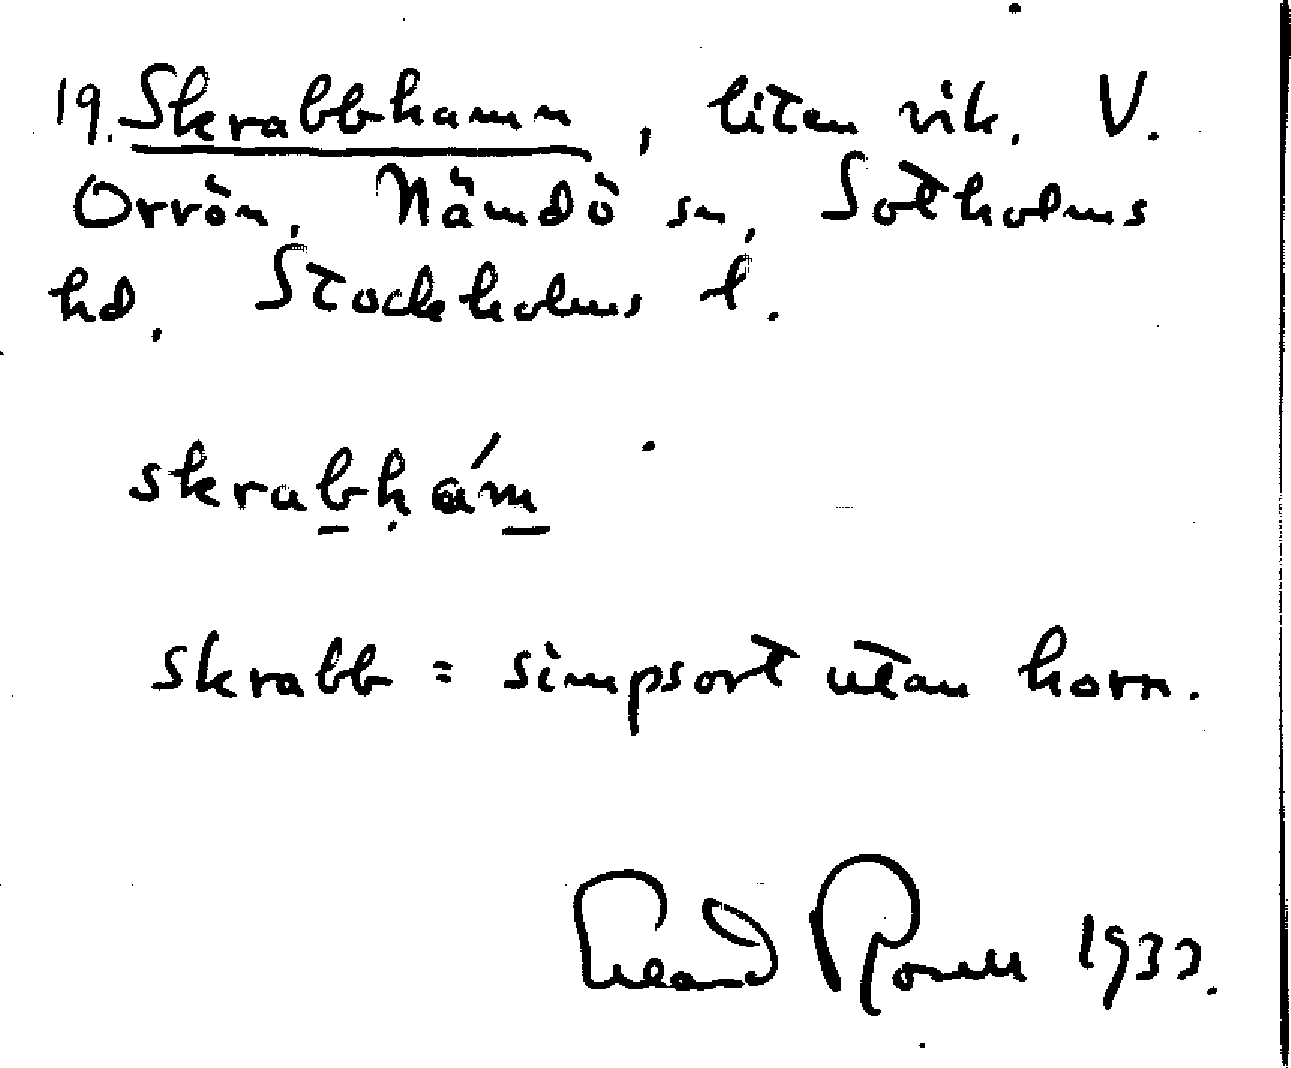 19. Skrabbhamn, liten vik. V.
Orrön, Nämdö sn, Sotholms
hd, Stockholms l.
skrabḥám
skrabb = simpsort utan horn.
Rosell 193